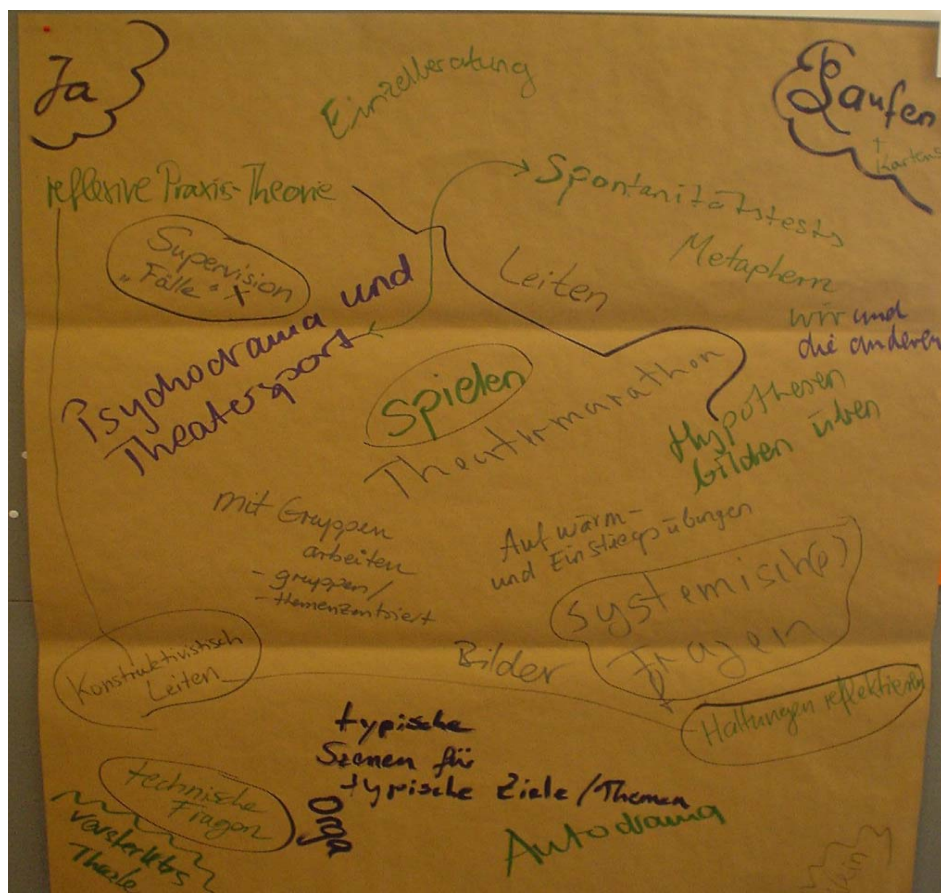 Ja
Einzelberatung
Laufen
+
Kartens
reflexive Praxis-Theorie
Spontanitätstests
Metaphern
Supervision
„Fälle“ +
Leiten
Psychodrama und
Theatersport
wir und
die anderen
Spielen
Theatermarathon
Hypothesen
bilden üben
mit Gruppen
arbeiten
- gruppen/
- themenzentriert
Aufwärm-
und Einstiegsübungen
systemisch(e)
Fragen
Konstruktivistisch
Leiten
Bilder
Haltungen reflektieren
typische
Szenen für
typische Ziele/Themen
technische
Fragen
Orga
Autodrama